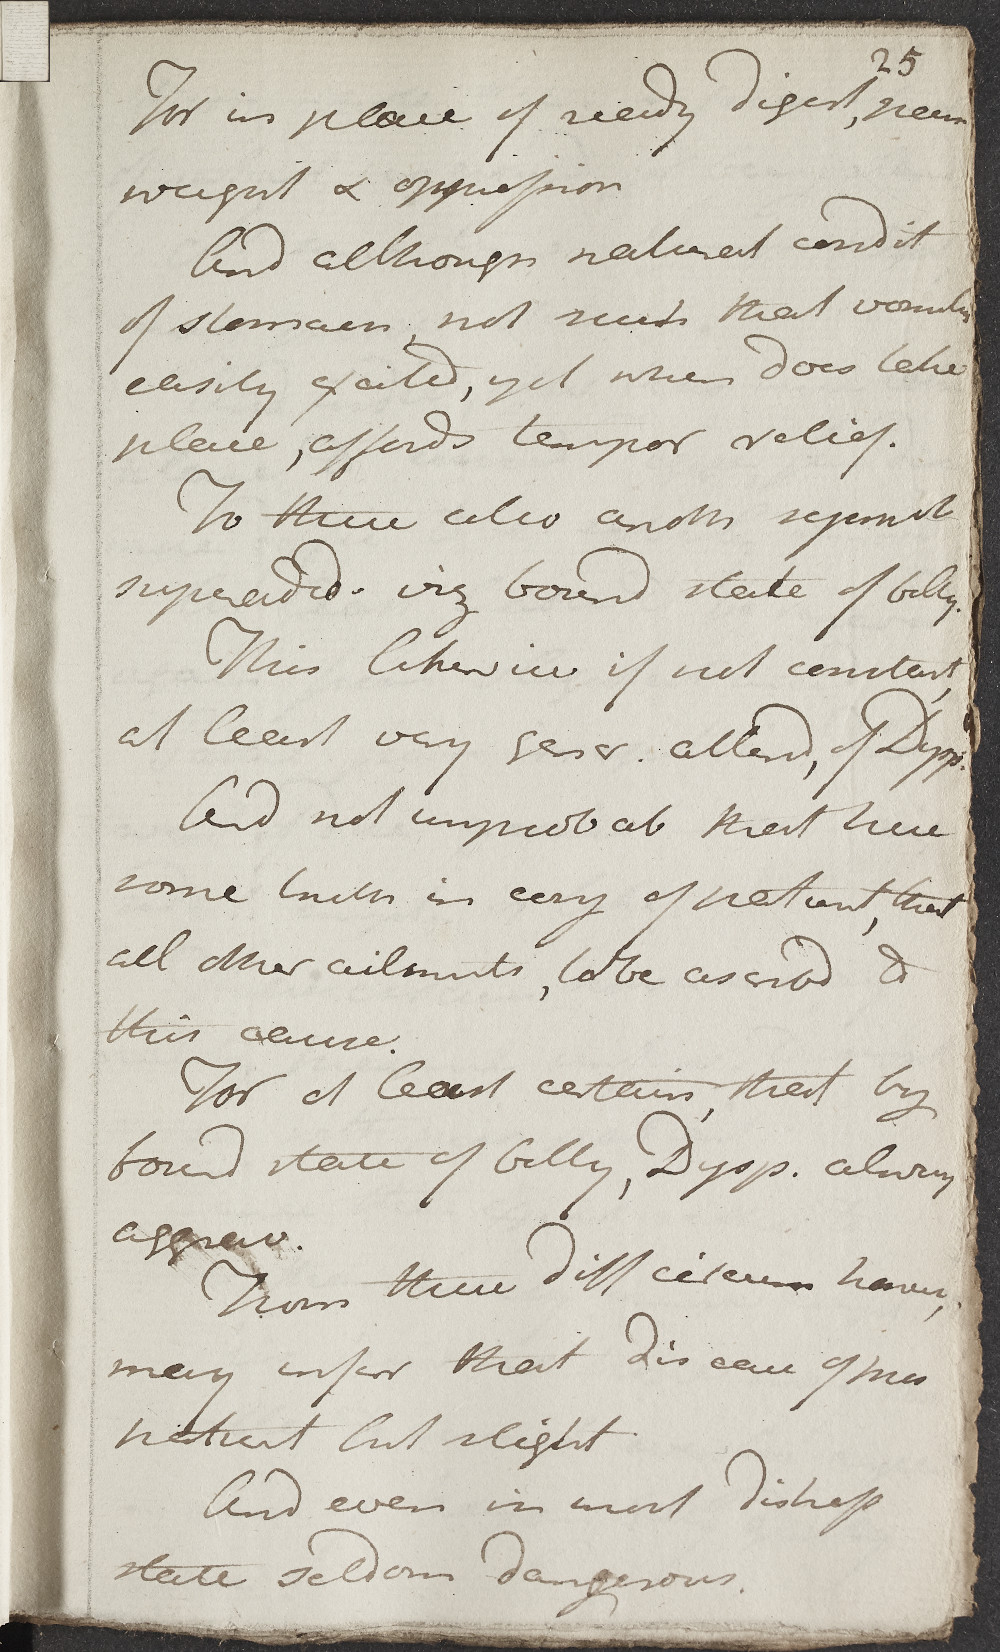 25
For in place of ready digest, pain
weight & oppression
And although natural condit
of stomach, not such that vomiting
easily excited, yet when does take
place, affords tempor relief.
To these also anoth symptom
superadded. viz bound state of belly.
This likewise if not constant,
at least very gener. attend, of Dysp.
And not improbab that here
some truth in accy of patient, that
all other ailments, to be ascribd to
this cause.
For at least certain, that by
bound state of belly, Dysp. alway
aggrav.
From these diff circum however,
may infer that disease of this
patient but slight
And even in most distress
state seldom dangerous.